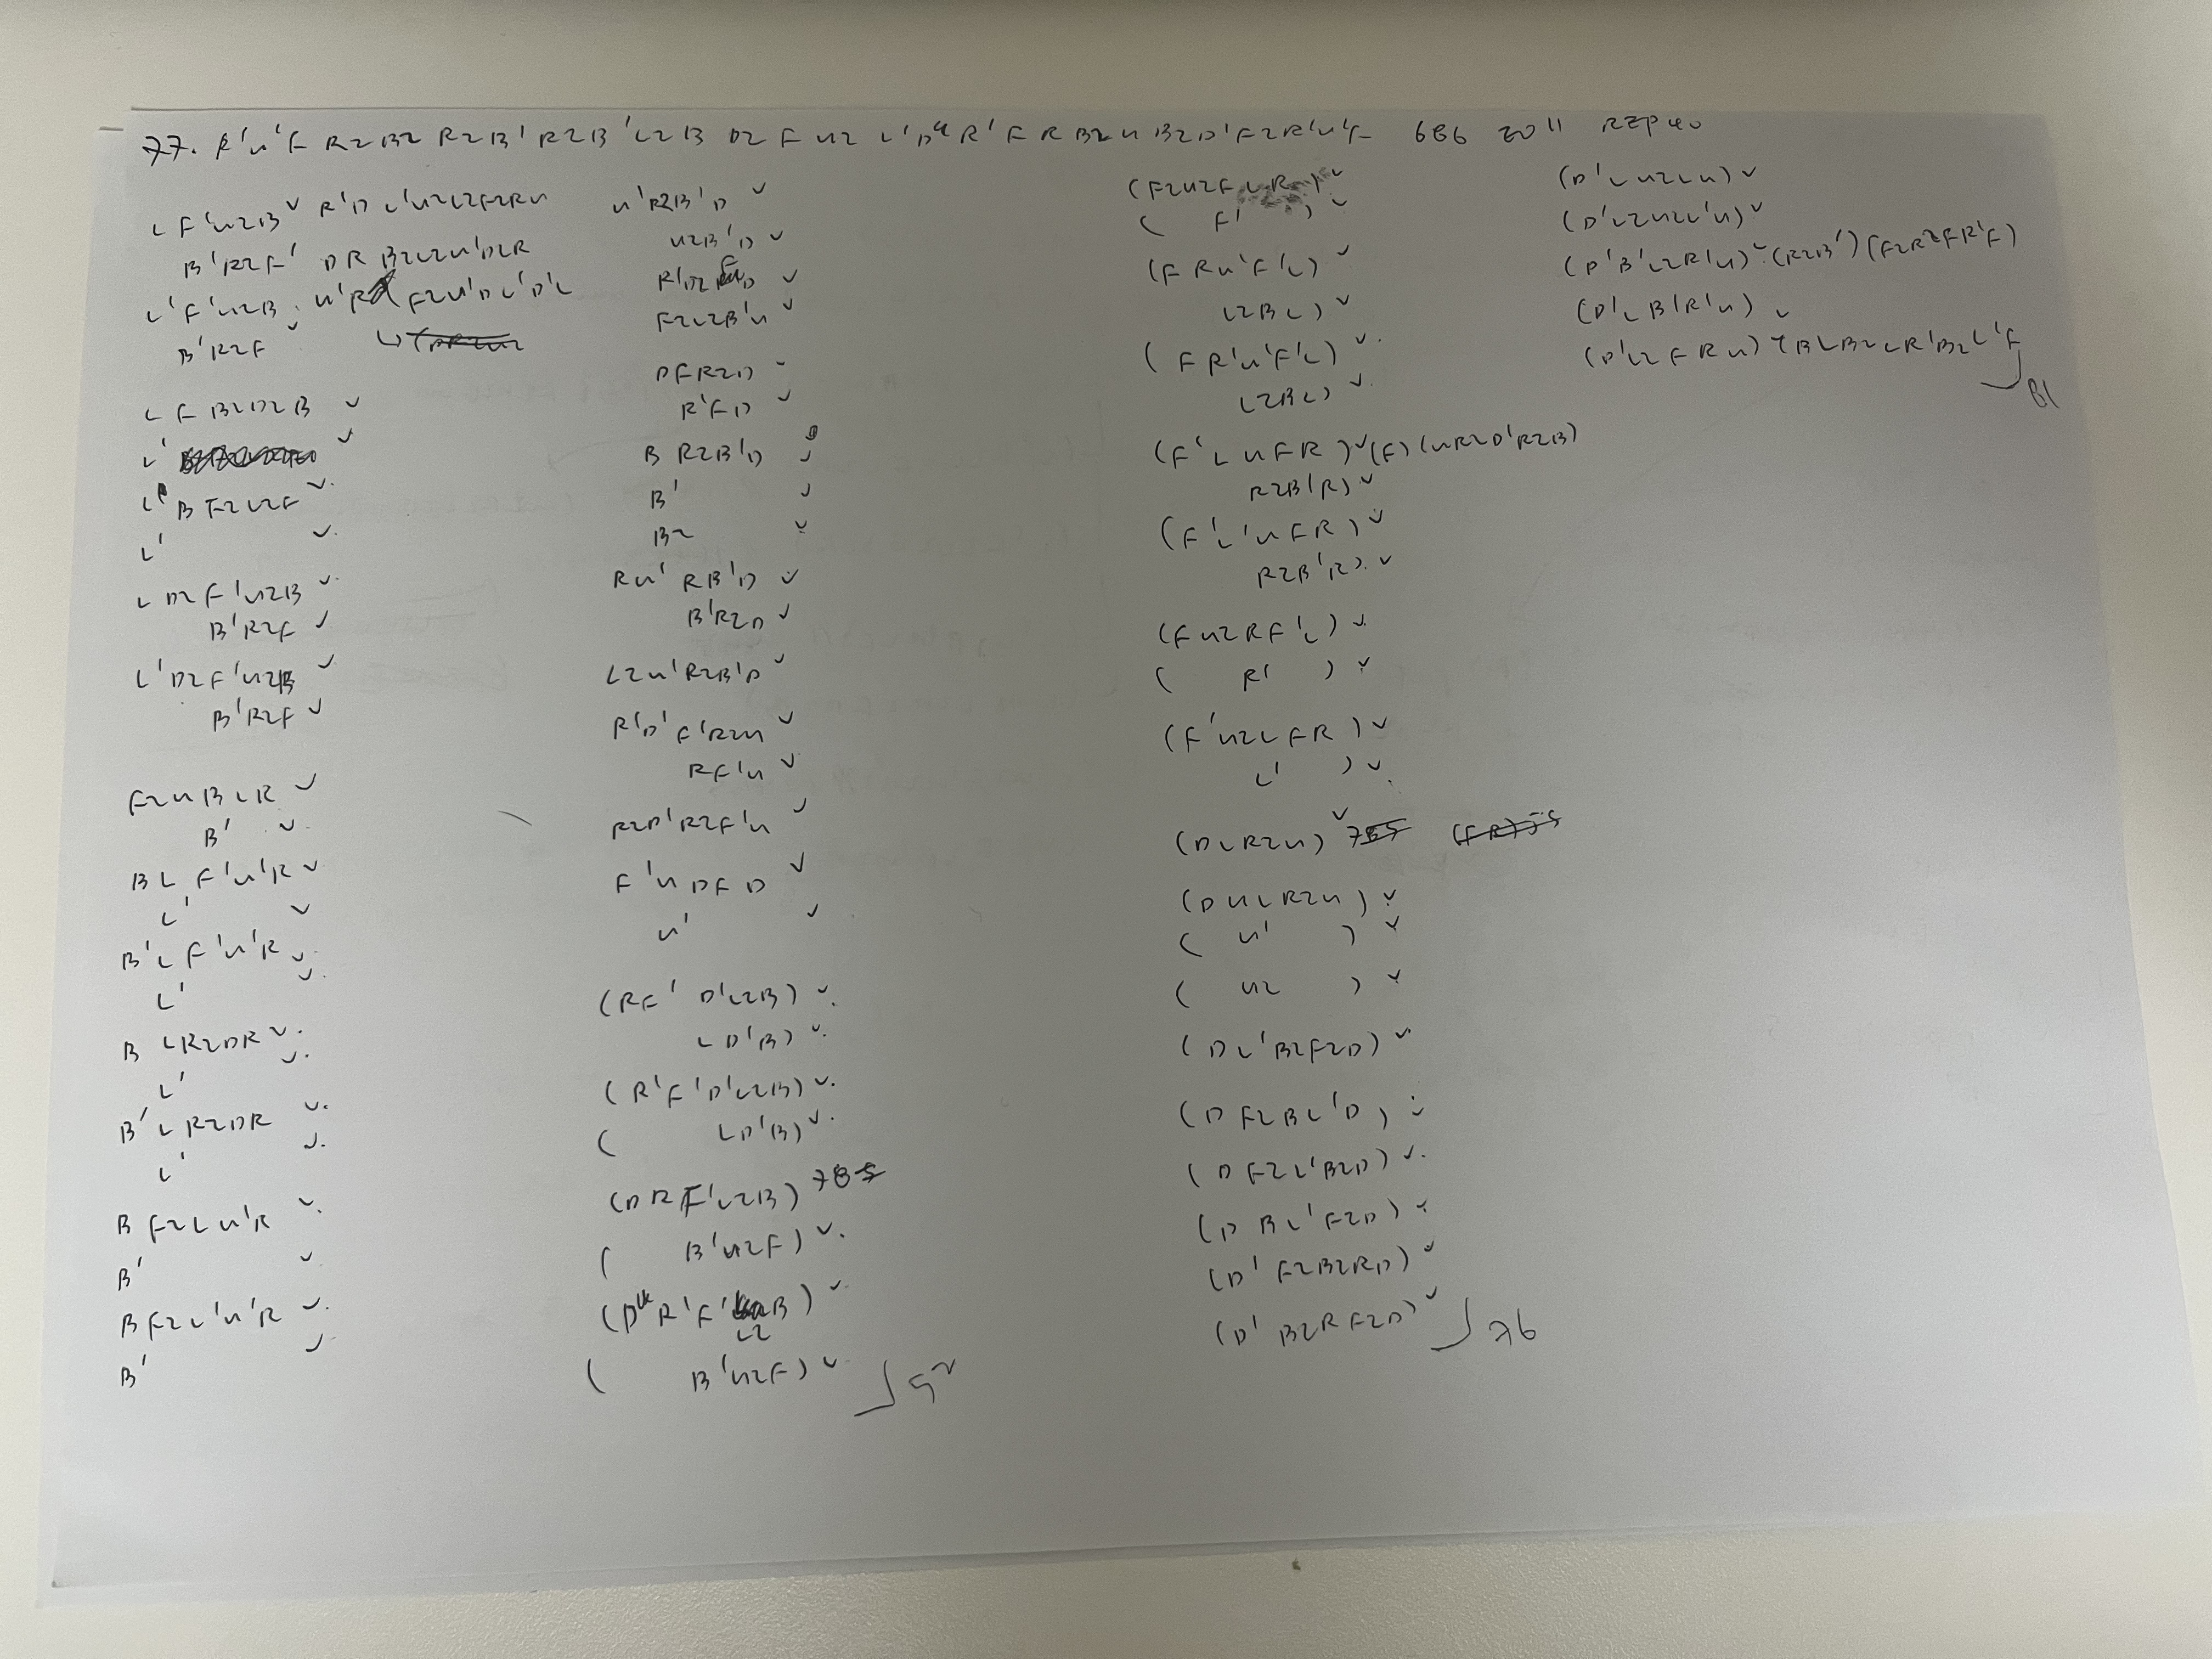 77. R'u'F R2B2 R2B'R2B'L2B D2 F U2 L'D" R'F R B2 u B2D'F2R'u'F 686 2011 REP40
L F'u2B ✓ R'D L'u2L2F2Ru
B'R2F' DR B2L2u'D2R
L'F'u2B. u'R F2u'D L'D'L
B'R2F ✓
L F B2D2B ✓
L' ✓
L' B F2U2F ✓
L' ✓
L D2 F'u2B ✓
B'R2F ✓
L'D2F'u2B ✓
B'R2F ✓
F2u B L R ✓
B' ✓
B L F'u'R ✓
L' ✓
B'L F'u'R ✓
L' ✓
B L R2DR ✓
L' ✓
B'L R2DR ✓
L' ✓
B F2 L u'R ✓
B' ✓
B F2L'u'R ✓
B' ✓
u'R2B'D ✓
u2B'D ✓
R'D2 D ✓
F2L2B'u ✓
DFR2D ✓
R'FD ✓
B R2B'D ✓
B' ✓
B2 ✓
Ru' RB'D ✓
B'R2D ✓
L2u'R2B'D ✓
R'D' F'R2u ✓
RF'u ✓
R2D'R2F'u ✓
F'u DF D ✓
u' ✓
(RF' D'L2B) ✓
L D'B) ✓
(R'F'D'L2B) ✓
( LD'B) ✓
(D R F'L2B) 785
( B'u2F) ✓
(D" R'F' L2 B) ✓
( B'u2F) ✓ 52
(F2u2F L R ) ✓
( F' ) ✓
(F Ru'F'L) ✓
L2BL) ✓
(F R'u'F'L) ✓
L2BL) ✓
(F'L u F R) ✓ (F) (uR2D'R2B)
R2B'R) ✓
(F'L'u F R) ✓
R2B'R) ✓
(F u2 R F'L) ✓
( R' ) ✓
(F'u2L F R) ✓
L' ) ✓
(D L R2u) ✓ 785 (F R) 55
(D u L R2u) ✓
( u' ) ✓
( u2 ) ✓
(D L'B2F2D) ✓
(D F2BL'D) ✓
(D F2L'B2D) ✓
(D B L'F2D) ✓
(D' F2B2RD) ✓
(D' B2R F2D) ✓ 76
(D'L u2Lu) ✓
(D'L2u2L'u) ✓
(D'B'L2R'u) ✓ (R2B')(F2R2FR'F)
(D'L B'R'u) ✓
(D'L2 F R u) ✓ (B L B2 L R'B2 L'F
81